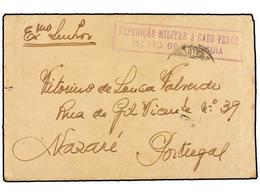 EXPEDIÇÃO MILITAR A CABO VERDE
ISENTO DE FRANQUIA
Exmo Senhor
Vitorino de Sousa Valverde
Rua de Gil Vicente Nº 39
Nazaré
Portugal